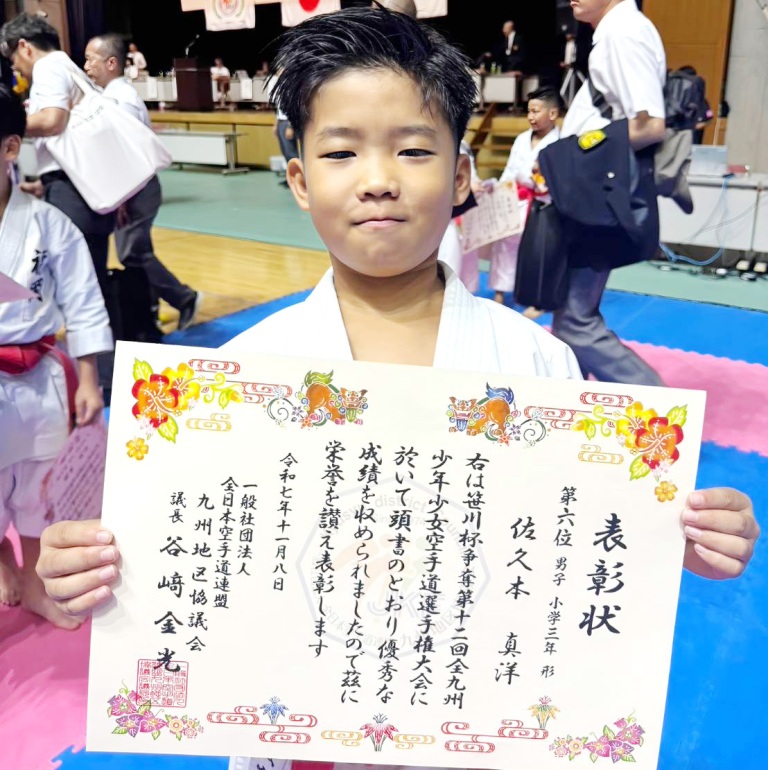 表彰状
第六位 男子 小学三年 形
佐久本 真洋
右は笹川杯争奪第十二回全九州
少年少女空手道選手権大会に
於いて頭書のとおり優秀な
成績を収められましたので茲に
栄誉を讃え表彰します
令和七年十一月八日
一般社団法人
全日本空手道連盟
九州地区協議会
議長 谷﨑 金光